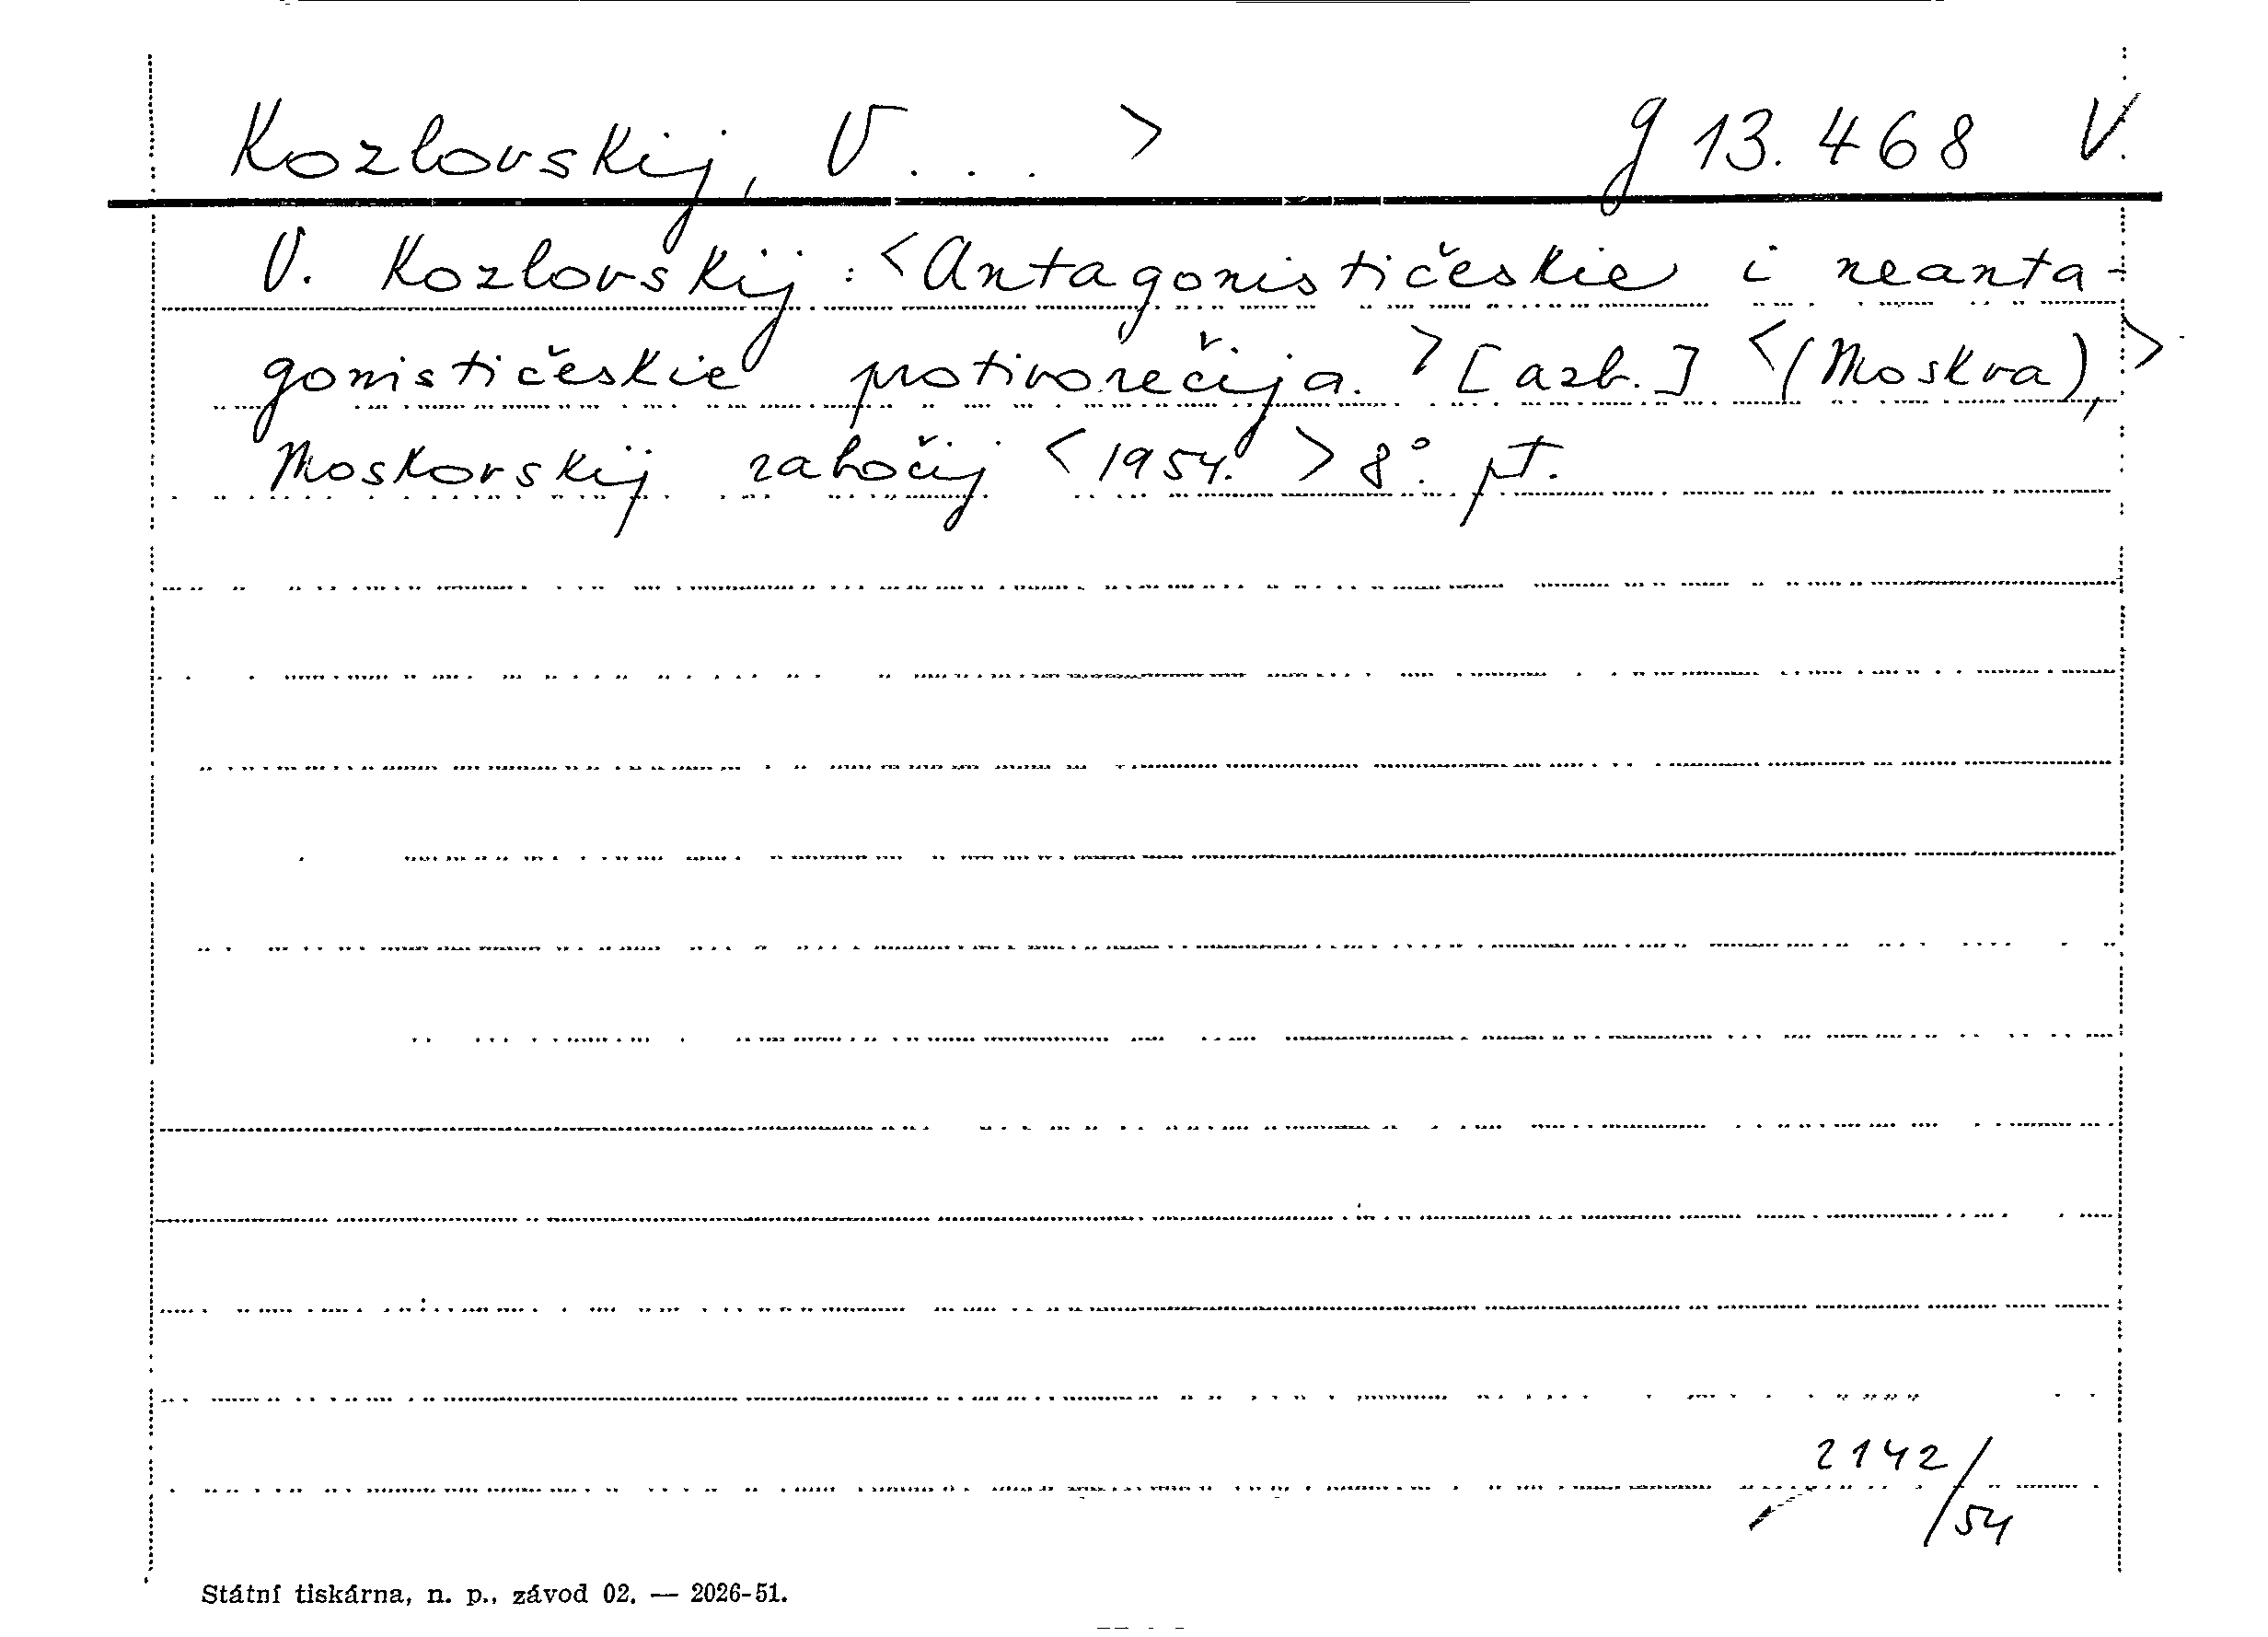 Kozlovskij, V... > g 13.468 V.
V. Kozlovskij: <Antagonističeskie i neanta-
gonističeskie protivorečija.> [azb.] <(Moskva),>
Moskovskij rabočij <1954.> 8°. pt.
2142/
/54
Státní tiskárna, n. p., závod 02. — 2026-51.